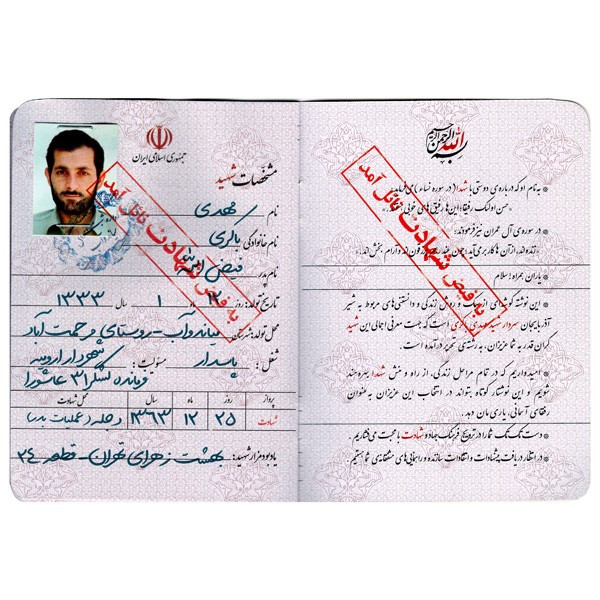 بسم الله الرحمن الرحیم
به فیض شهادت نائل آمد
به نام او که درباره‌ی دوستی با شهدا (در سوره نساء) می‌فرماید:
حسن اولئک رفیقا؛ این‌ها رفیق‌های خوبی
در سوره‌ی آل عمران نیز فرمودند:
یاران همراه! سلام
این نوشته گوشه‌ای از سبک و روش زندگی و دانستنی‌های مربوط به شیر
آذربایجان سردار شهید مهدی باکری است که جهت معرفی اجمالی این شهید
گران قدر به شما عزیزان، به رشته‌ی تحریر درآمده است
امیدواریم که در تمام مراحل زندگی، از راه و منش شهدا بهره‌مند
شویم و این کوشنار کوتاه بتواند در انتخاب این عزیزان به‌عنوان
رفقای آسمانی، یاری مان دهد.
دست تک تک شما را در ترویج فرهنگ جهاد و شهادت با محبت می‌فشاریم.
در انتظار دریافت پیشنهادات و انتقادات سازنده و راهنمایی‌های مشفقانه‌ی شما هستیم
جمهوری اسلامی ایران
مشخصات شهید
به فیض شهادت نائل آمد
نام مهدی
نام خانوادگی باکری
نام پدر فیض اله
تاریخ تولد: روز ۳۰ ماه ۱ سال ۱۳۳۳
محل تولد: شهرستان میاندوآب - روستای رحمت آباد
شغل: پاسدار مسئولیت: شهردار ارومیه
فرمانده لشکر ۳۱ عاشورا
پرواز روز ماه سال محل شهادت
شهادت ۲۵ ۱۲ ۱۳۶۳ دجله (عملیات بدر)
یادبود مزار شهید: بهشت زهرای تهران - قطعه ۲۴